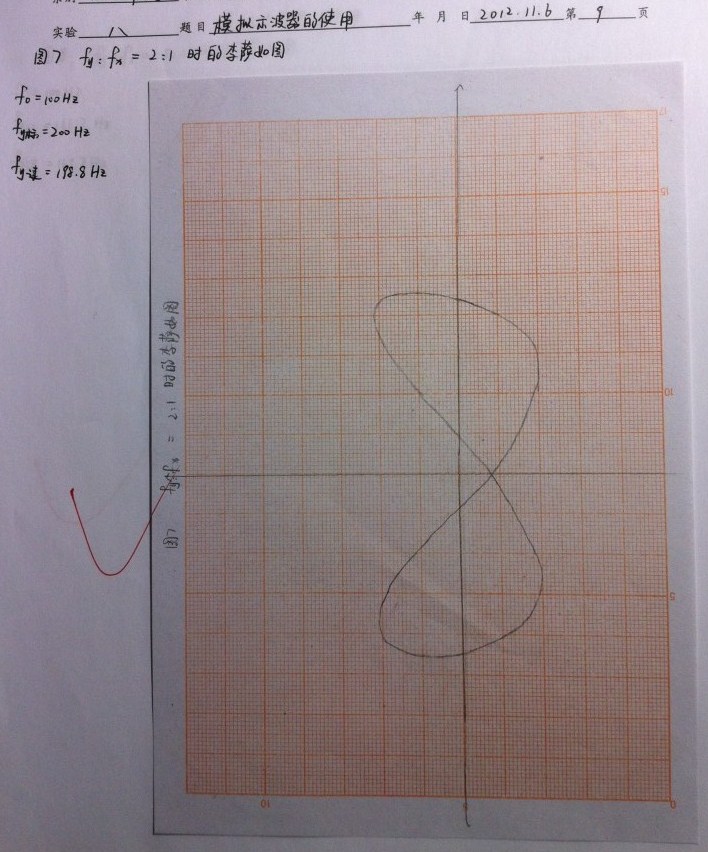 实验 八 题目 模拟示波器的使用 年 月 日 2012.11.6 第 9 页
图7 fy:fx = 2:1 时的李萨如图
f0 = 100 Hz
fy标 = 200 Hz
fy读 = 198.8 Hz
图7 fy:fx = 2:1 时的李萨如图
0
15
10
5
10
0